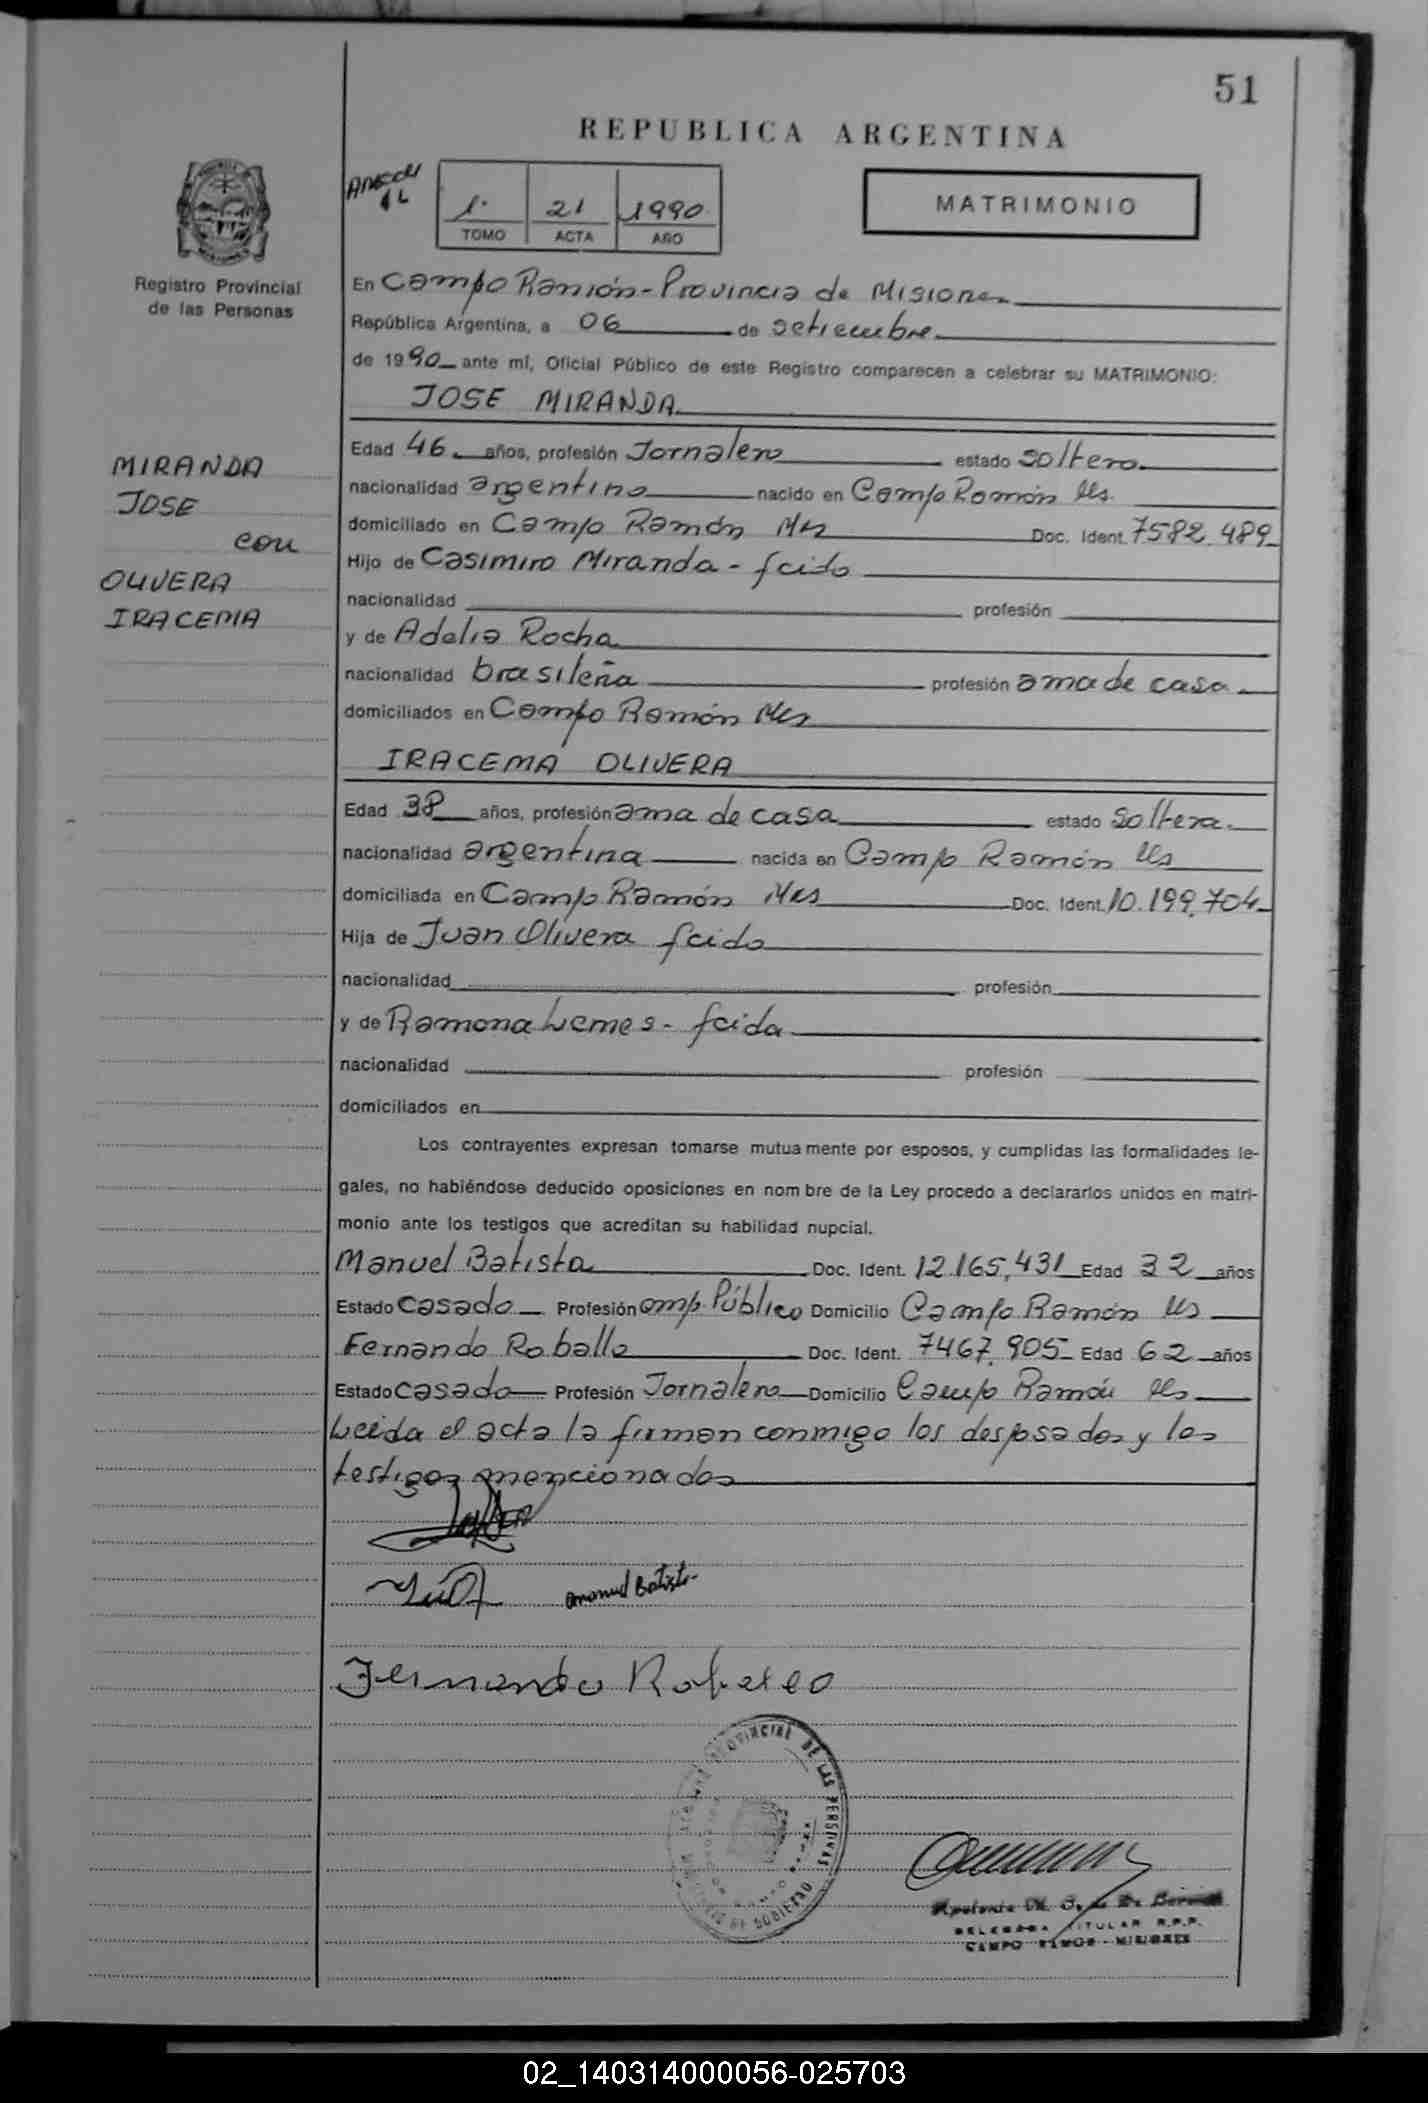 51
REPUBLICA ARGENTINA
1. 21 1990
TOMO ACTA AÑO
MATRIMONIO
Registro Provincial
de las Personas
MIRANDA
JOSE
con
OLIVERA
IRACEMA
En Campo Ramón - Provincia de Misiones
República Argentina, a 06 de setiembre
de 1990 ante mí, Oficial Público de este Registro comparecen a celebrar su MATRIMONIO:
JOSE MIRANDA
Edad 46 años, profesión Jornalero estado soltero
nacionalidad argentino nacido en Campo Ramón Ms.
domiciliado en Campo Ramón Mes Doc. Ident. 7582.489
Hijo de Casimiro Miranda - fcido
nacionalidad profesión
y de Adelia Rocha
nacionalidad brasileña profesión ama de casa
domiciliados en Campo Ramón Mes
IRACEMA OLIVERA
Edad 38 años, profesión ama de casa estado soltera
nacionalidad argentina nacida en Campo Ramón Ms
domiciliada en Campo Ramón Mes Doc. Ident. 10.199.704
Hija de Juan Olivera fcido
nacionalidad profesión
y de Ramona Lemes - fcida
nacionalidad profesión
domiciliados en
Los contrayentes expresan tomarse mutuamente por esposos, y cumplidas las formalidades le-
gales, no habiéndose deducido oposiciones en nombre de la Ley procedo a declararlos unidos en matri-
monio ante los testigos que acreditan su habilidad nupcial.
Manuel Batista Doc. Ident. 12.165.431 Edad 32 años
Estado casado Profesión emp. Público Domicilio Campo Ramón Ms
Fernando Roballo Doc. Ident. 7467.905 Edad 62 años
Estado casado Profesión Jornalero Domicilio Campo Ramón Ms
Leida el acta la firman conmigo los desposados y los
testigos mencionados
Manuel Batista
Fernando Roballo
PROVINCIAL DE LAS PERSONAS
DE GOBIERNO
TITULAR R.P.P.
CAMPO RAMON - MISIONES
02_140314000056-025703